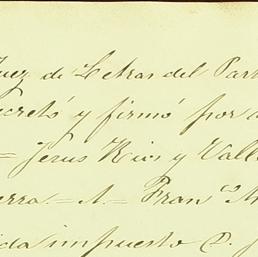 Juez de Letras del Par
decretó y firmó por a
= Jesus Rios y Valle
erra. = A. = Fran.co M
ida impuesto P.